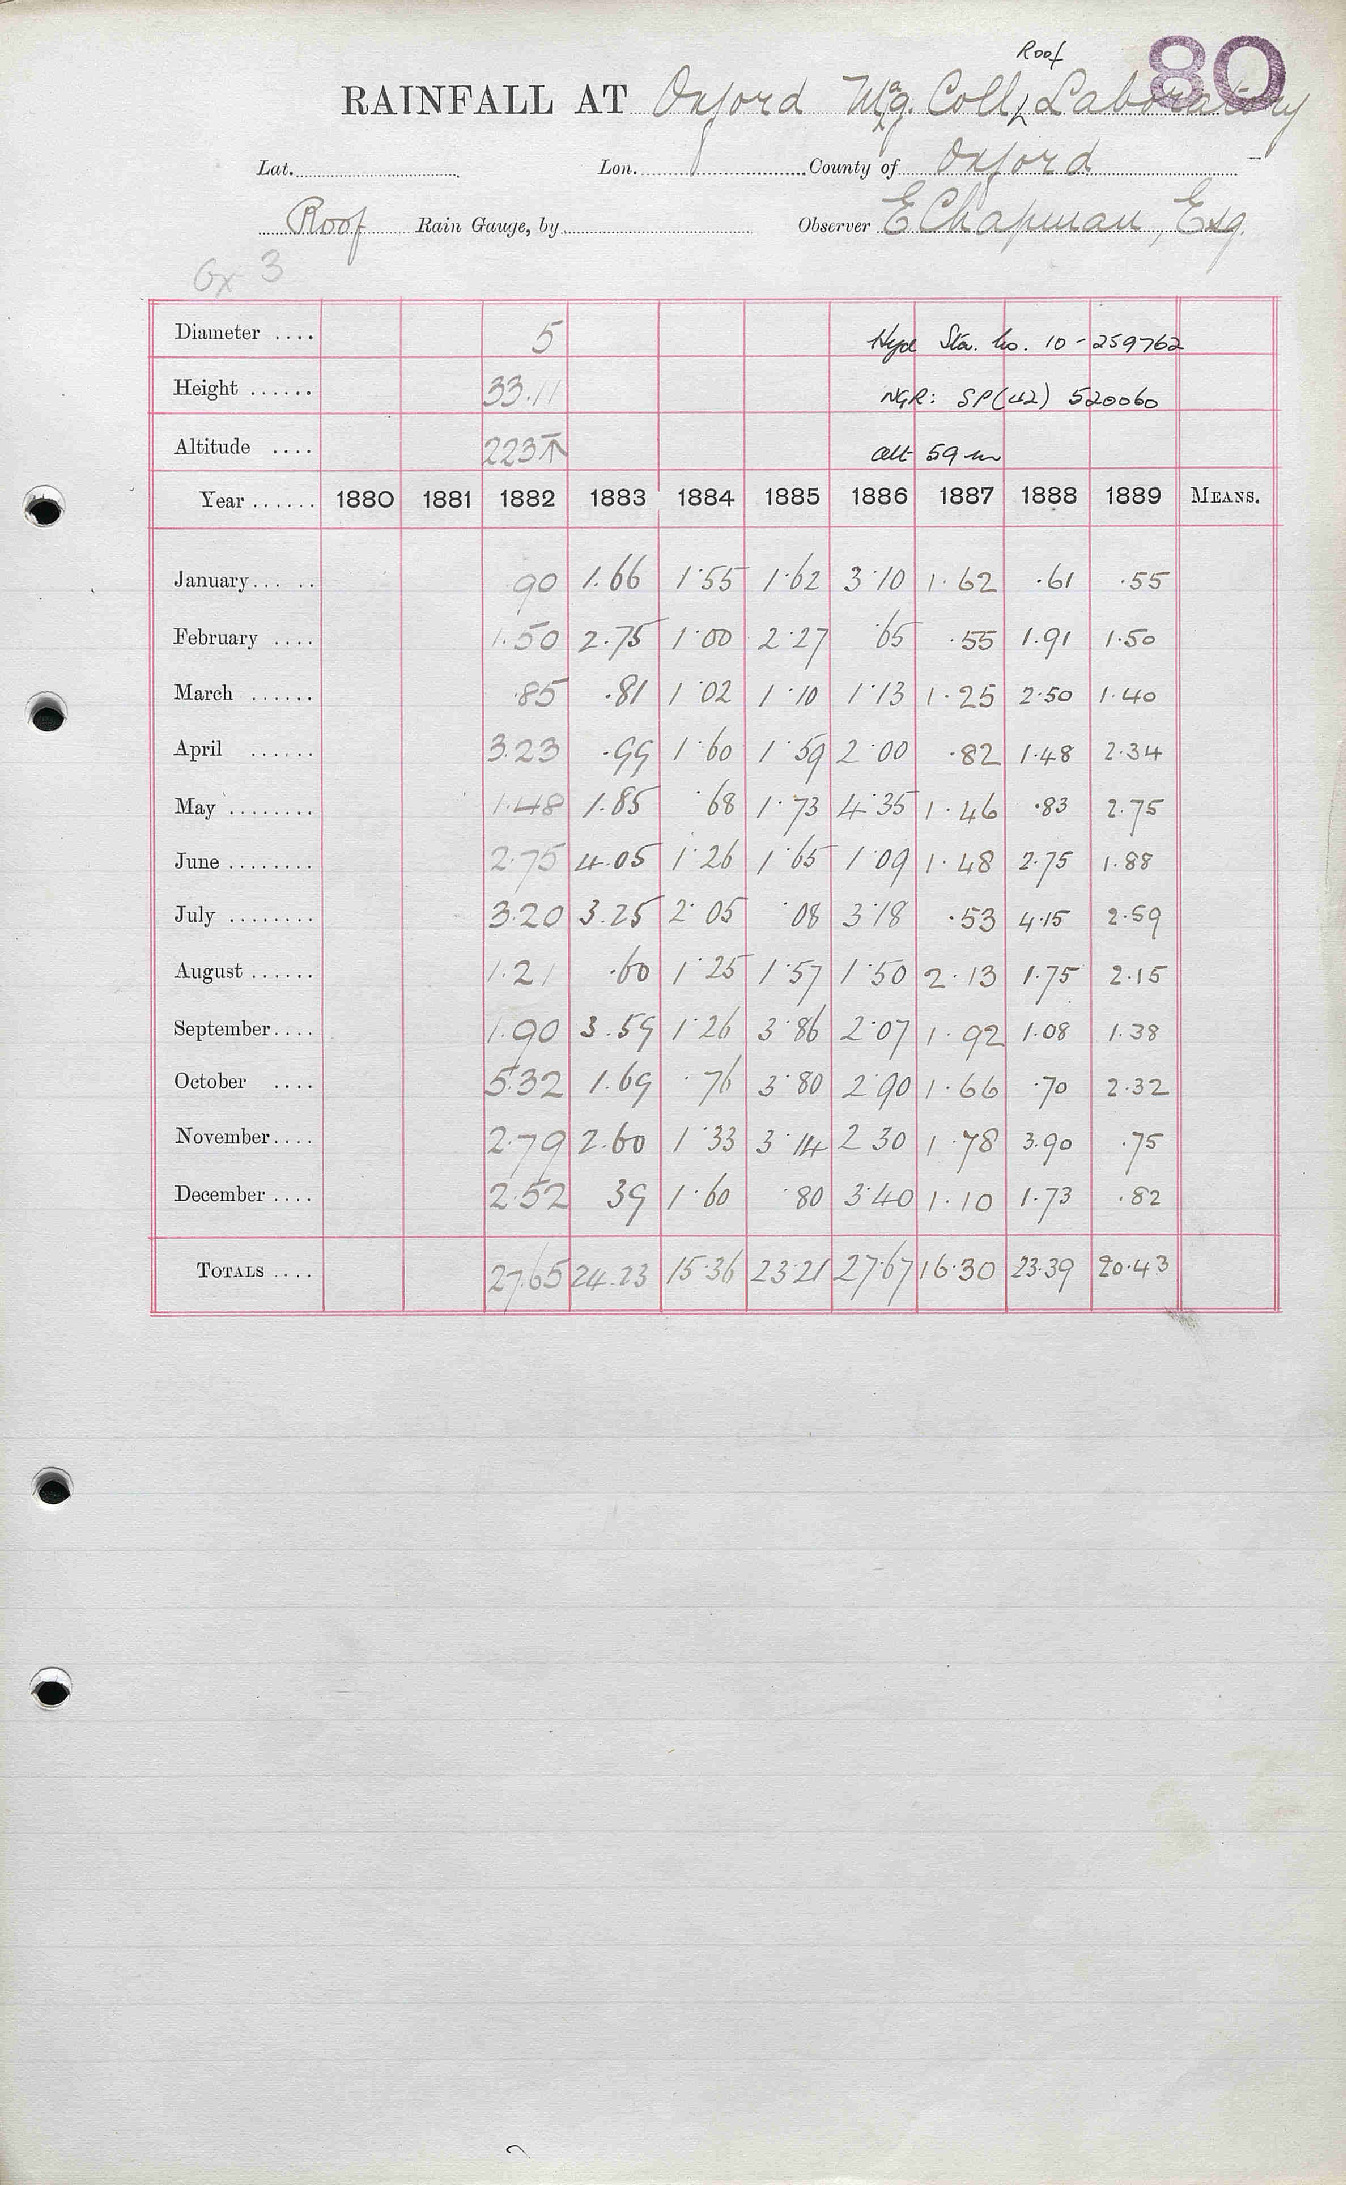 80
Roof
RAINFALL AT Oxford Mag. Coll. Laboratory
Lat. Lon. County of Oxford
Roof Rain Gauge, by Observer E Chapman, Esq.
Ox 3
Diameter .... 5 Hyd Sta. No. 10-259762
Height ...... 33.11 NGR: SP(42) 520060
Altitude .... 223 alt 59 m
Year ...... 1880 1881 1882 1883 1884 1885 1886 1887 1888 1889 MEANS.
January ... .. 90 1.66 1.55 1.62 3.10 1.62 .61 .55
February .... 1.50 2.75 1.00 2.27 .65 .55 1.91 1.50
March ...... .85 .81 1.02 1.10 1.13 1.25 2.50 1.40
April ...... 3.23 .99 1.60 1.59 2.00 .82 1.48 2.34
May ........ 1.48 1.85 .68 1.73 4.35 1.46 .83 2.75
June ........ 2.75 4.05 1.26 1.65 1.09 1.48 2.75 1.88
July ........ 3.20 3.25 2.05 .08 3.18 .53 4.15 2.59
August ...... 1.21 .60 1.25 1.57 1.50 2.13 1.75 2.15
September .... 1.90 3.59 1.26 3.86 2.07 1.92 1.08 1.38
October .... 5.32 1.69 .76 3.80 2.90 1.66 .70 2.32
November .... 2.79 2.60 1.33 3.14 2 30 1.78 3.90 .75
December .... 2.52 39 1.60 .80 3.40 1.10 1.73 .82
TOTALS .... 27.65 24.23 15.36 23.21 27.67 16.30 23.39 20.43